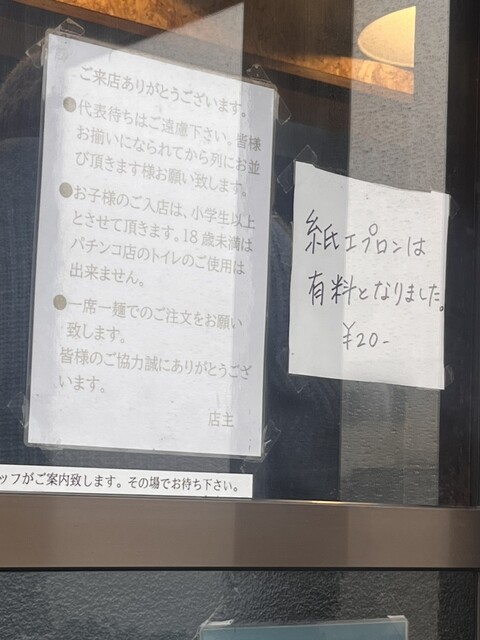 ご来店ありがとうございます。
●代表待ちはご遠慮下さい。皆様
お揃いになられてから列にお並
び頂きます様お願い致します。
●お子様のご入店は、小学生以上
とさせて頂きます。18歳未満は
パチンコ店のトイレのご使用は
出来ません。
●一席一麺でのご注文をお願い
致します。
皆様のご協力誠にありがとうござ
います。
店主
紙エプロンは
有料となりました。
¥20-
ッフがご案内致します。その場でお待ち下さい。